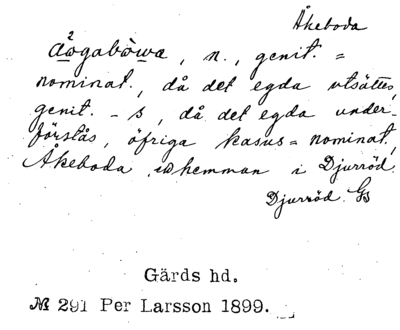 Åkeboda
åogabòwa, n., genit. =
nominat., då det egda utsättes,
genit. -s, då det egda under-
förstås, öfriga kasus = nominat.,
Åkeboda, hemman i Djurröd.
Djurröd. Gs
Gärds hd.
№ 291 Per Larsson 1899.